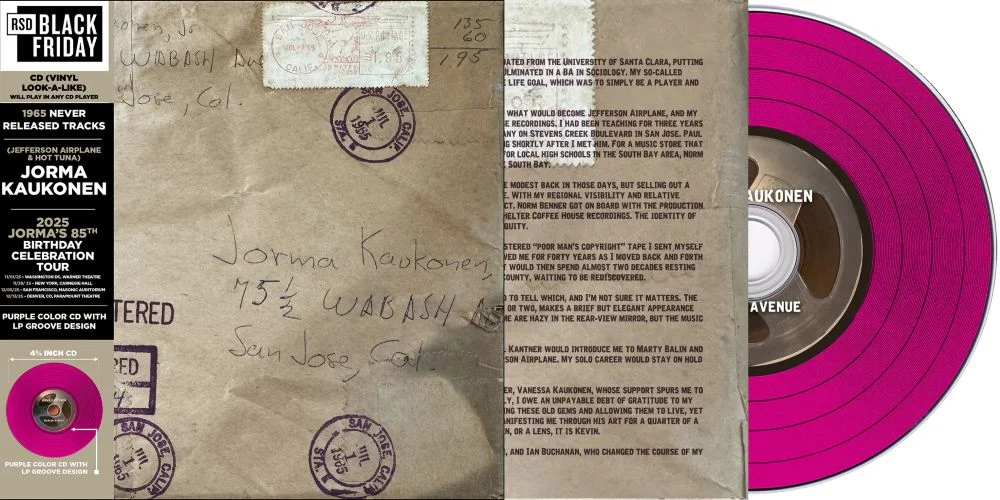 RSD BLACK
FRIDAY
CD (VINYL
LOOK-A-LIKE)
WILL PLAY IN ANY CD PLAYER
1965 NEVER
RELEASED TRACKS
(JEFFERSON AIRPLANE
& HOT TUNA)
JORMA
KAUKONEN
2025
JORMA'S 85TH
BIRTHDAY
CELEBRATION
TOUR
11/01/25 - WASHINGTON DC, WARNER THEATRE
11/29/25 - NEW YORK, CARNEGIE HALL
12/05/25 - SAN FRANCISCO, MASONIC AUDITORIUM
12/13/25 - DENVER, CO, PARAMOUNT THEATRE
PURPLE COLOR CD WITH
LP GROOVE DESIGN
4¾ INCH CD
PURPLE COLOR CD WITH
LP GROOVE DESIGN
WABASH
San Jose, Cal.
135
60
1.95
SAN JOSE, CALIF.
JUL
1965
STA. B
Jorma Kaukonen
75 ½ WABASH
San Jose, Cal.
TERED
SAN JOSE, CALIF.
JUL
1965
SAN JOSE, CALIF.
JUL
1965
STA. B
ATED FROM THE UNIVERSITY OF SANTA CLARA, PUTTING
ULMINATED IN A BA IN SOCIOLOGY. MY SO-CALLED
LIFE GOAL, WHICH WAS TO SIMPLY BE A PLAYER AND
WHAT WOULD BECOME JEFFERSON AIRPLANE, AND MY
E RECORDINGS. I HAD BEEN TEACHING FOR THREE YEARS
ANY ON STEVENS CREEK BOULEVARD IN SAN JOSE. PAUL
G SHORTLY AFTER I MET HIM. FOR A MUSIC STORE THAT
FOR LOCAL HIGH SCHOOLS IN THE SOUTH BAY AREA, NORM
SOUTH BAY.
E MODEST BACK IN THOSE DAYS, BUT SELLING OUT A
E. WITH MY REGIONAL VISIBILITY AND RELATIVE
CT. NORM BENNER GOT ON BOARD WITH THE PRODUCTION
HELTER COFFEE HOUSE RECORDINGS. THE IDENTITY OF
QUITY.
STERED "POOR MAN'S COPYRIGHT" TAPE I SENT MYSELF
WED ME FOR FORTY YEARS AS I MOVED BACK AND FORTH
T WOULD THEN SPEND ALMOST TWO DECADES RESTING
COUNTY, WAITING TO BE REDISCOVERED.
D TO TELL WHICH, AND I'M NOT SURE IT MATTERS. THE
OR TWO, MAKES A BRIEF BUT ELEGANT APPEARANCE
ME ARE HAZY IN THE REAR-VIEW MIRROR, BUT THE MUSIC
. KANTNER WOULD INTRODUCE ME TO MARTY BALIN AND
SON AIRPLANE. MY SOLO CAREER WOULD STAY ON HOLD
ER, VANESSA KAUKONEN, WHOSE SUPPORT SPURS ME TO
LY, I OWE AN UNPAYABLE DEBT OF GRATITUDE TO MY
ING THESE OLD GEMS AND ALLOWING THEM TO LIVE, YET
ANIFESTING ME THROUGH HIS ART FOR A QUARTER OF A
N, OR A LENS, IT IS KEVIN.
, AND IAN BUCHANAN, WHO CHANGED THE COURSE OF MY
AUKONEN
AVENUE